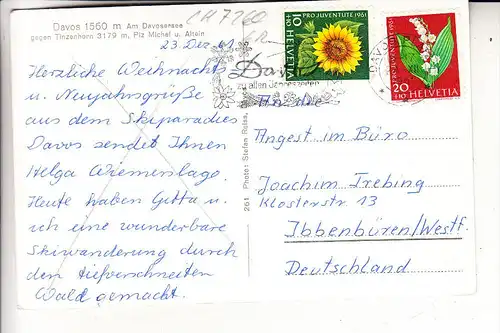 Davos 1560 m Am Davosersee
gegen Tinzenhorn 3179 m, Piz Michel u. Altein
CH 7260
23. Dez. 61
Herzliche Weihnacht
u. Neujahrsgrüße
aus dem Skiparadies
Davos sendet Ihnen
Helga Wiemenslage.
Heute haben Gitta u.
ich eine wunderbare
Skiwanderung durch
den tiefverschneiten
Wald gemacht.
261 Photo: Stefan Reiss,
10 +10 HELVETIA
PRO JUVENTUTE 1961
PRO JUVENTUTE 1961
20 +10 HELVETIA
Davos
zu allen Jahreszeiten
An den
Angest im Büro
Joachim Trebing
Klosterstr 13
Ibbenbüren/Westf.
Deutschland